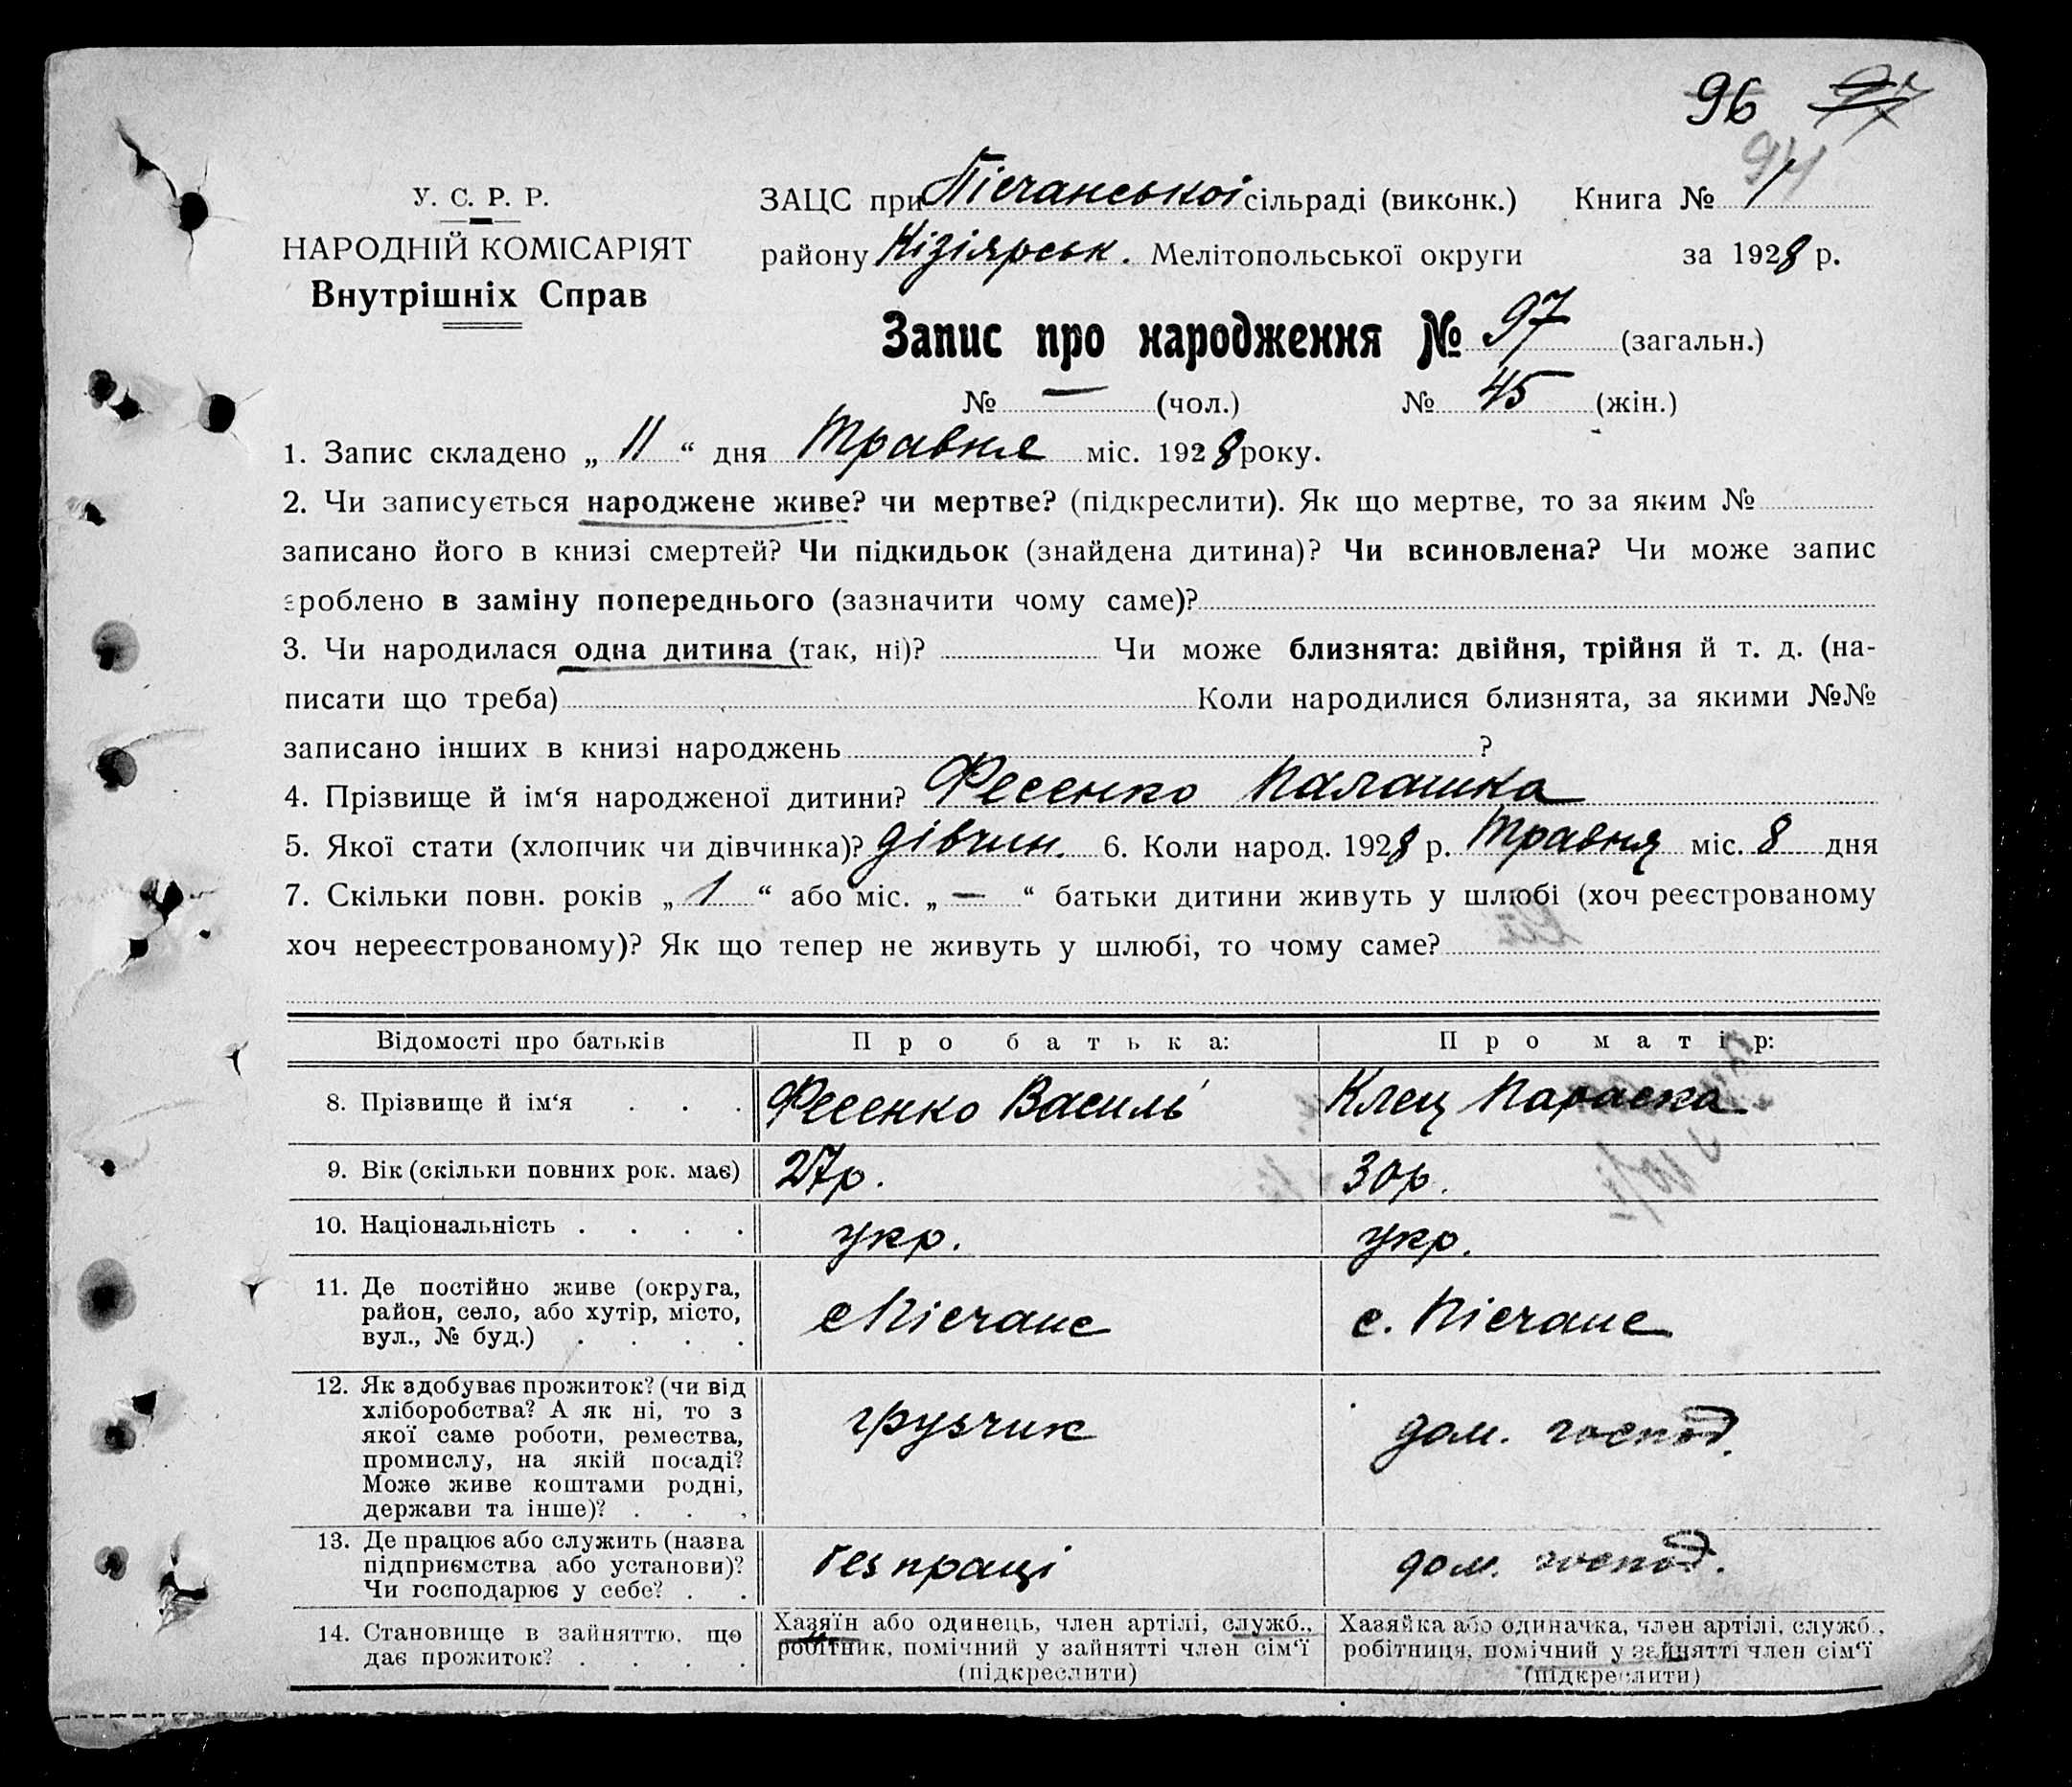 96 97
94
У. С. Р. Р.
НАРОДНІЙ КОМІСАРІЯТ
Внутрішніх Справ
ЗАЦС при Пісчанської сільраді (виконк.) Книга № 1
району Кізіярськ. Мелітопольської округи за 1928 р.
Запис про народження № 97 (загальн.)
№ — (чол.) № 45 (жін.)
1. Запис складено „ 11 “ дня Травня міс. 1928 року.
2. Чи записується народжене живе? чи мертве? (підкреслити). Як що мертве, то за яким №
записано його в книзі смертей? Чи підкидьок (знайдена дитина)? Чи всиновлена? Чи може запис
зроблено в заміну попереднього (зазначити чому саме)?
3. Чи народилася одна дитина (так, ні)? Чи може близнята: двійня, трійня й т. д. (на-
писати що треба) Коли народилися близнята, за якими №№
записано інших в книзі народжень ?
4. Прізвище й ім‘я народженої дитини? Фесенко Палашка
5. Якої стати (хлопчик чи дівчинка)? дівчин. 6. Коли народ. 1928 р. Травня міс. 8 дня
7. Скільки повн. років „ 1 “ або міс. „ — “ батьки дитини живуть у шлюбі (хоч реєстрованому
хоч нереєстрованому)? Як що тепер не живуть у шлюбі, то чому саме?
Відомості про батьків Про батька: Про матір:
8. Прізвище й ім‘я . . . Фесенко Василь Клец Параска
9. Вік (скільки повних рок. має) 27р. 30р.
10. Національність . . . . укр. укр.
11. Де постійно живе (округа,
район, село, або хутір, місто,
вул., № буд.) . . . .
с Пісчане с. Пісчане
12. Як здобуває прожиток? (чи від
хліборобства? А як ні, то з
якої саме роботи, ремества,
промислу, на якій посаді?
Може живе коштами родні,
держави та інше)? . . .
грузчик дом. господ.
13. Де працює або служить (назва
підприємства або установи)?
Чи господарює у себе? . .
без праці дом. господ.
14. Становище в зайняттю, що
дає прожиток? . . . .
Хазяїн або одинець, член артілі, служб.,
робітник, помічний у зайнятті член сім‘ї
(підкреслити)
Хазяйка або одиначка, член артілі, служб.,
робітниця, помічний у зайнятті член сім‘ї
(підкреслити)